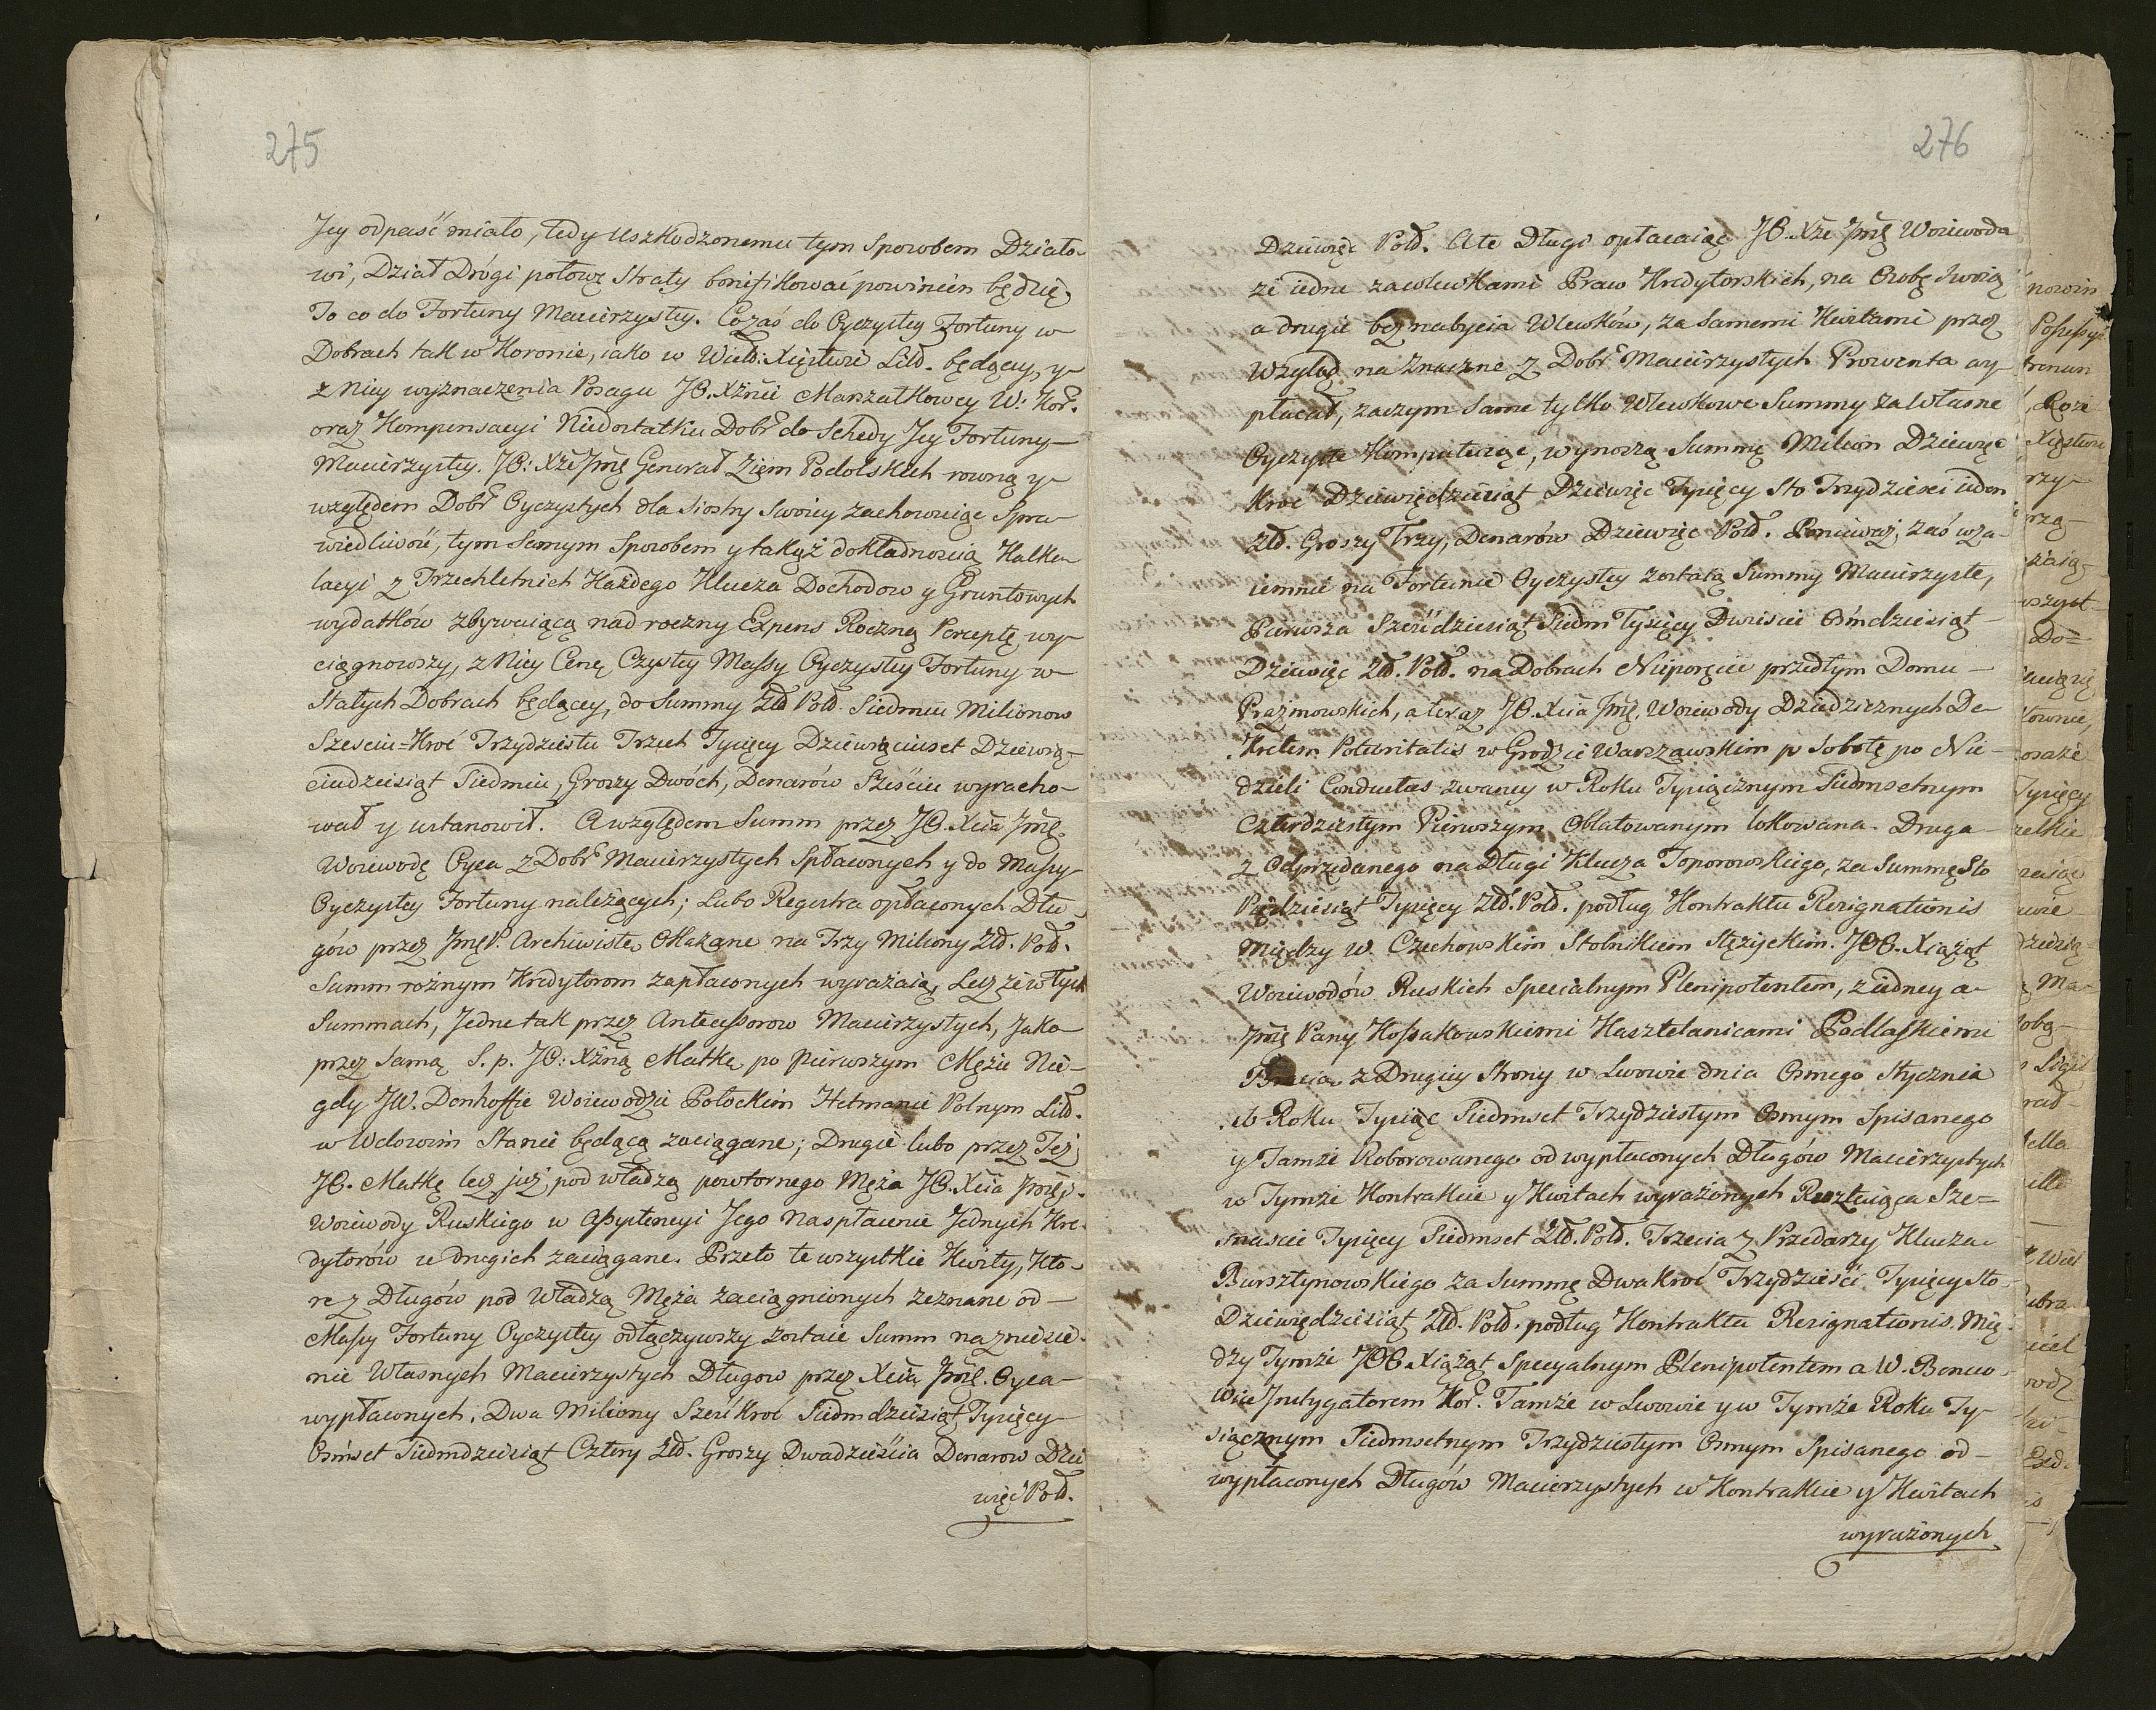 275
Jey odpaść miało, tedy uszkodzonemu tym Sposobem Działo-
wi, Dział Drógi połowę Straty bonifikować powinien będzie,
To co do Fortuny Macierzystey. Co zaś do Oyczystey Fortuny w
Dobrach tak w Koronie, iako w Wielk: Xięstwie Litt. będącey, y
z Niey wyznaczenia Posagu JO. Xżnie Marszałkowey W: Kor.
oraz Kompensacyi Niedostatku Dobr do Schedy Jey Fortuny
Macierzystey. JO: Xże Jmę Generał Ziem Podolskich rowną y
względem Dobr Oyczystych dla Siostry Swoiey zachowuiąc Spra-
wiedliwość, tym Samym Sposobem y takąż dokładnoscią Kalku-
lacyi z Trzechletnich Każdego Klucza Dochodow y Gruntowych
wydatków zbywaiącą nad roczny Expens Roczną Perceptę wy-
ciągnowszy, z Niey Cenę Czystey Massy Oyczystey Fortuny w
Stałych Dobrach będącey, do Summy Złł Poll. Siedmiu Milionow
Szesciu=Kroć Trzydziestu Trzech Tysięcy Dziewięciuset Dziewię-
ciudziesiąt Siedmiu, Groszy Dwóch, Denarów Sześciu wyracho-
wał y ustanowił. A względem Summ przez JO. Xcia Jmę
Woiewodę Oyca z Dobr Macierzystych Spłaconych y do Massy
Oyczystey Fortuny należących; Lubo Regestra opłaconych Dłu-
gów przez JmęP. Archiwistę okazane na Trzy Miliony Złł. Poll.
Summ rożnym Kredytorom zapłaconych wyrażaią, Lecz że w tych
Summach, Jedne tak przez Antecessorow Macierzystych, Jako
przez Samą S. p. JO: Xżną Matkę po pierwszym Mężu Nie-
gdy JW. Denhoffie Woiewodzie Połockim Hetmanie Polnym Litt.
w Wdowim Stanie będącą zaciągane; Drugie lubo przez Też
JO. Matkę lecz już pod władzą powtornego Męża JO. Xcia Jmę
Woiewody Ruskiego w Assystencyi Jego na spłacenie Jednych Kre-
dytorów u drugich zaciągane. Przeto te wszystkie Kwity, Kto-
re z Długów pod Władzą Męża zaciągnionych zeznane od
Massy Fortuny Oyczystey odłączywszy zostaie Summ na zniesie-
nie Własnych Macierzystych Długow przez Xcia Jmę. Oyca
wypłaconych. Dwa Miliony Sześćkroć Siedmdziesiąt Tysięcy
Ośmset Siedmdziesiąt Cztery Złł. Groszy Dwadzieścia Denarow Dzie
więć Poll.
276
Dziewięć Poll. A te Długi opłacaiąc JO. Xże Jmę Woiewoda
że iedne za wlewkami Praw Kredytorskich, na Osobę Swoią
a drugie bez nabycia Wlewków, za Samemi Kwitami przez
Wzgląd na znaczne z Dobr Macierzystych Prowenta wy-
płacał, zaczym same tylko Wlewkowe Summy za Własne
Oyczyste Komputuiąc, wynoszą Summę Milion Dziewięć
Kroć Dziewięćdziesiąt Dziewięć Tysięcy Sto Trzydzieści ieden
Złł. Groszy Trzy, Denarów Dziewięć Poll. Ponieważ zaś wza-
iemnie na Fortunie Oyczystey zostaią Summy Macierzyste,
Pierwsza Sześćdziesiąt Siedm Tysięcy Dwieście Ośmdziesiąt
Dziewięć Złł. Poll. na Dobrach Nieporęcie przedtym Domu
Prażmowskich, a teraz JO. Xcia Jmę. Woiewody Dziedzicznych De-
kretem Potioritatis w Grodzie Warszawskim w Sobotę po Nie-
dzieli Conductus zwaney w Roku Tysiącznym Siedmsetnym
Czterdziestym Pierwszym Oblatowanym lokowana. Druga
z Odprzedanego na Długi Klucza Toporowskiego, za Summę Sto
Pięćdziesiąt Tysięcy Złł. Poll. podług Kontraktu Resignationis
Między W. Czechowskim Stolnikiem Stężyckim. JOO. Xiążąt
Woiewodów Ruskich Specialnym Plenipotentem, z iedney a
Jmę Pany Kossakowskiemi Kasztelanicami Podlaskiemi
Bracia z Drugiey Strony w Lwowie dnia Osmego Stycznia
w Roku Tysiąc Siedmset Trzydziestym Osmym Spisanego
y Tamże Roborowanego od wypłaconych Długów Macierzystych
w Tymże Kontrakcie y Kwitach wyrażonych Resztuiąca Sze=
snascie Tysięcy Siedmset Złł. Poll. Trzecia z Przedaży Klucza
Bursztynowskiego za Summę Dwakroć Trzydzieści Tysięcy Sto
Dziewięćdziesiąt Złł. Poll. podług Kontraktu Resignationis. Mię-
dzy Tymże JOO Xiążąt Specyalnym Plenipotentem a W. Benuo-
wice Instygatorem Kor. Tamże w Lwowie y w Tymże Roku Ty-
siącznym Siedmsetnym Trzydziestym Osmym Spisanego od
wypłaconych Długów Macierzystych w Kontrakcie y Kwitach
wyrażonych